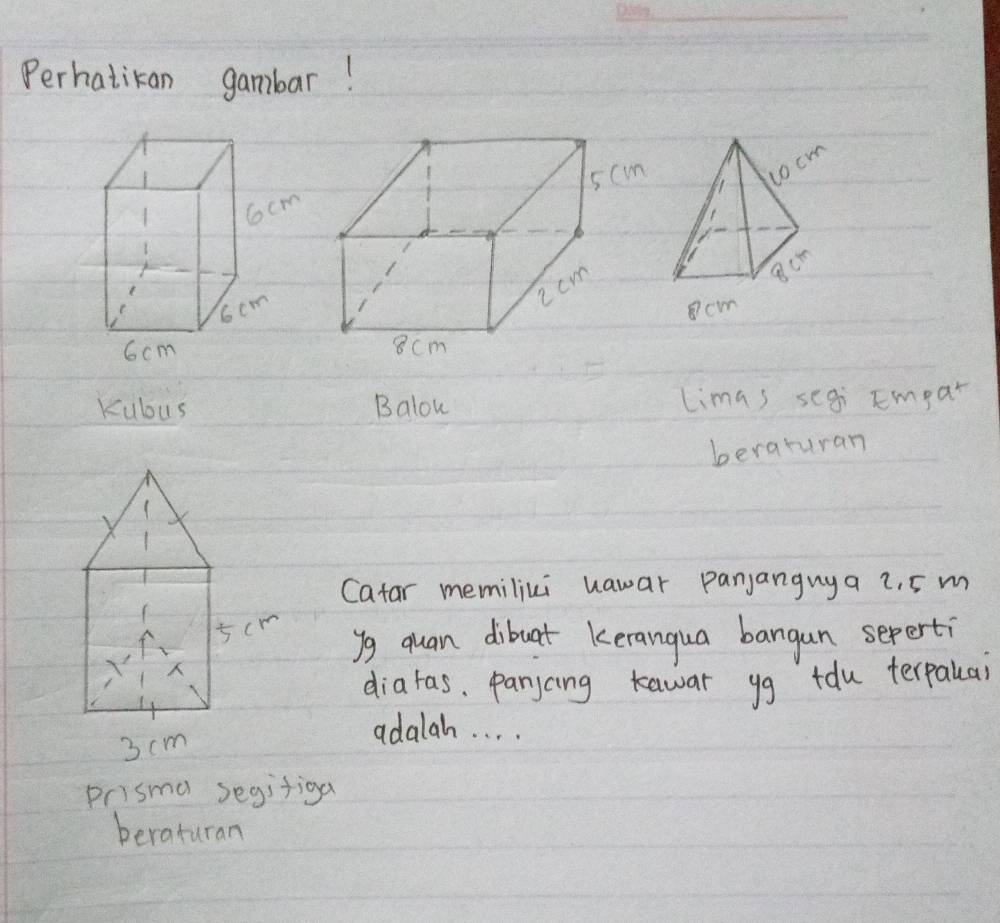 Date
Perhatikan gambar !
6cm
6cm
6cm
Kubus
5cm
2cm
8cm
Balok
10cm
8cm
8cm
Limas segi Empat
beraturan
5cm
3cm
Prisma segitiga
beraturan
Catar memiliki kawat panjangnya 2,5 m
yg akan dibuat kerangka bangun seperti
diatas. panjang kawat yg tdk terpakai
adalah ....